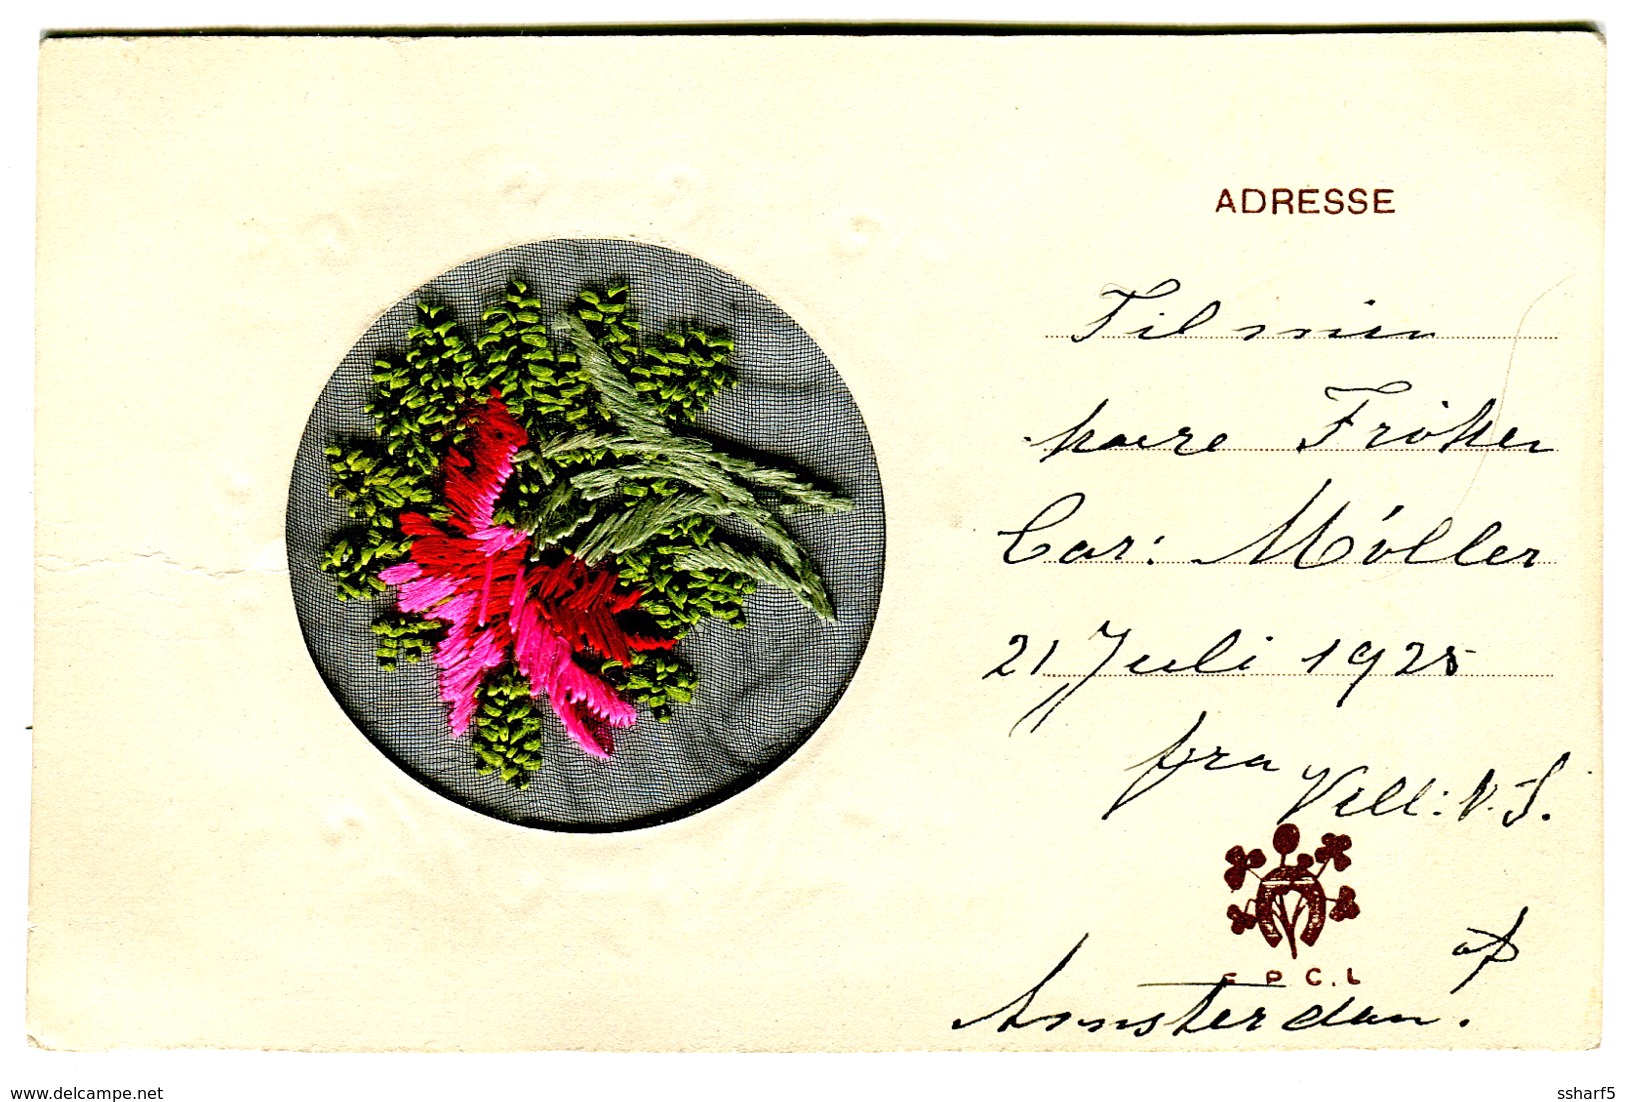 ADRESSE
Til min
kære Fröken
Car: Möller
21 Juli 1925
fra Vell: V. S.
af
F P C. L
Amsterdam.
www.delcampe.net
ssharf5